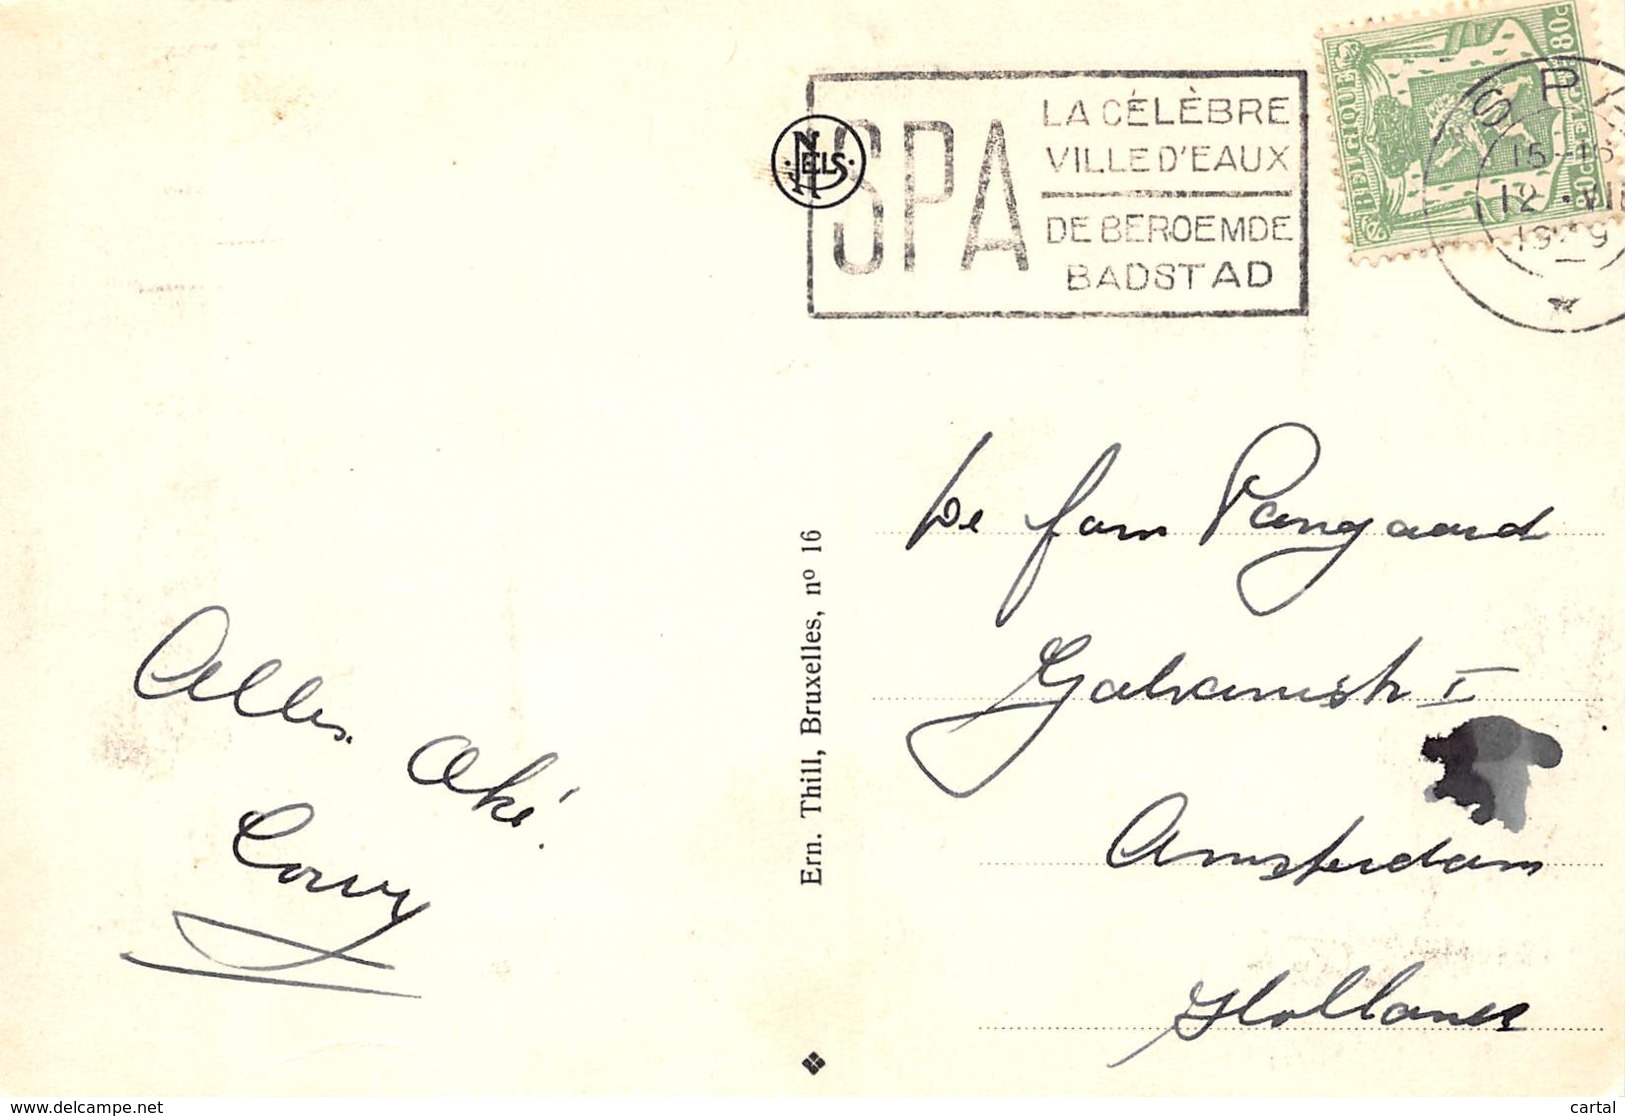 SPA
LA CÉLÈBRE
VILLE D'EAUX
DE BEROEMDE
BADSTAD
NELS
BELGIQUE
80c
SPA
15-16
12 · VII
1949
De fam Pangaard
Galvanistr I
Amsterdam
Holland
Alles Oké
Corry
Ern. Thill, Bruxelles, nº 16
www.delcampe.net
cartal